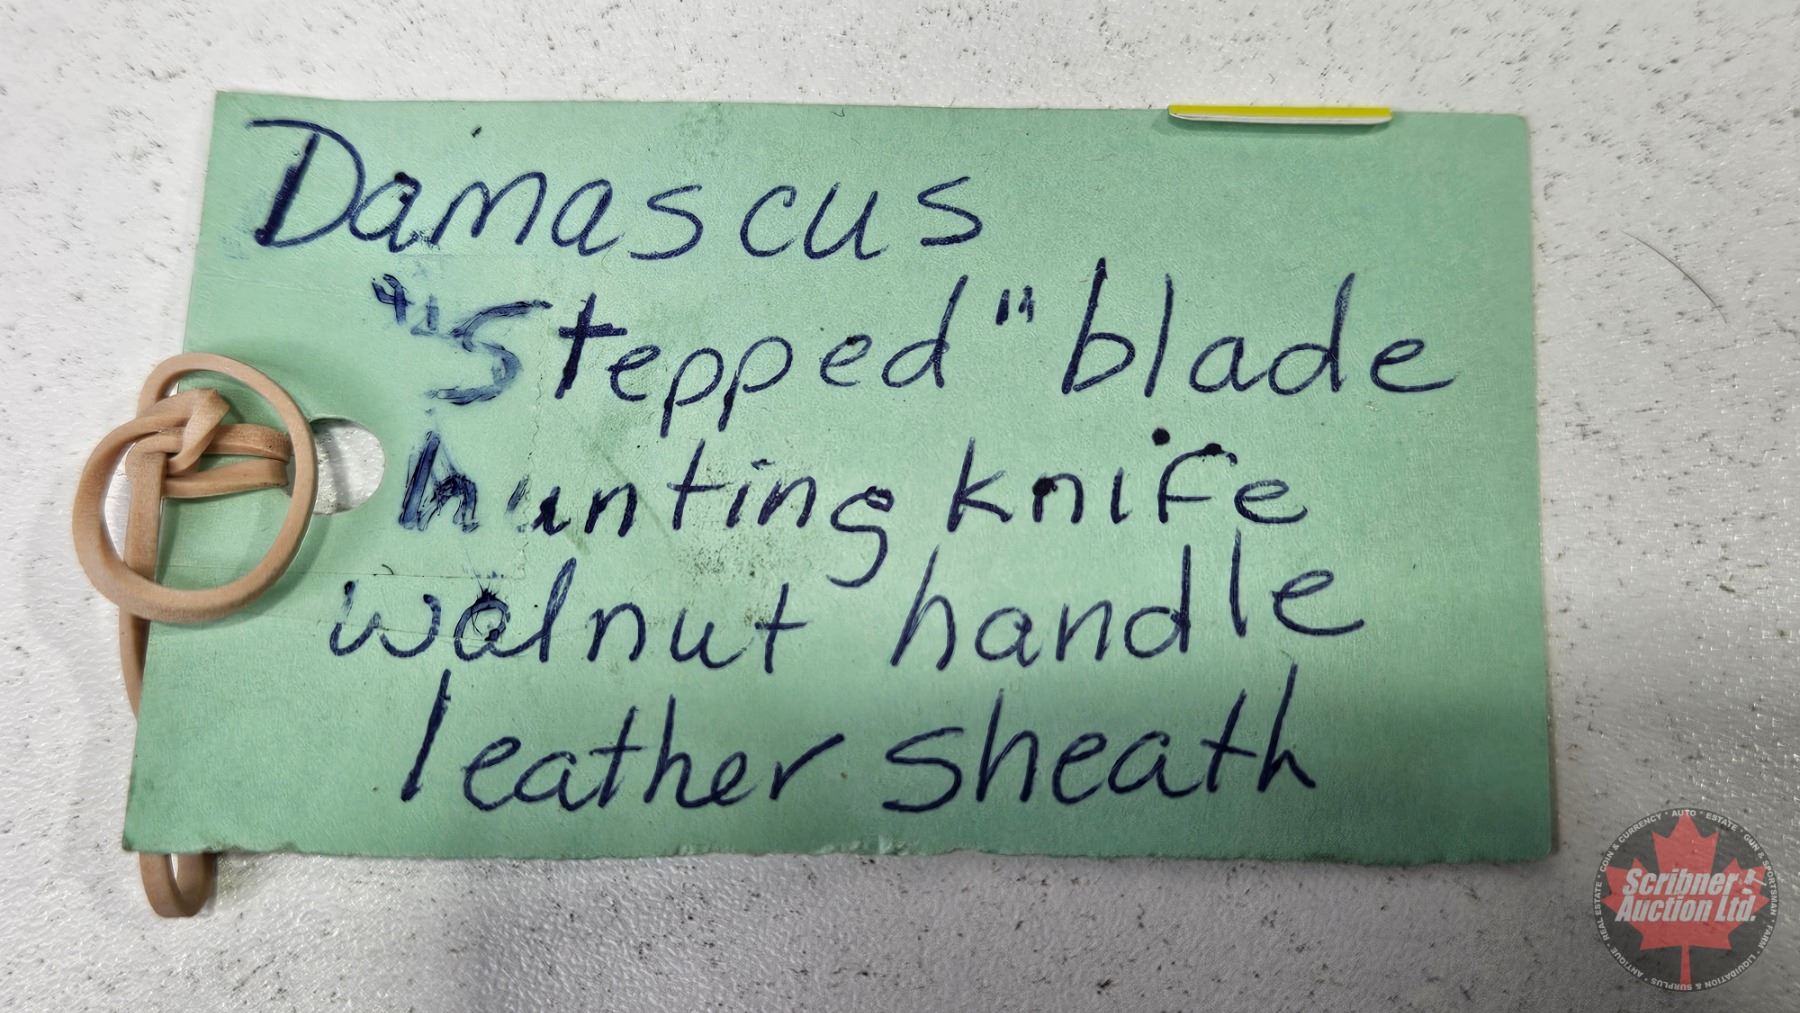 Damascus
"Stepped" blade
hunting knife
walnut handle
leather sheath
Scribner
Auction Ltd.
REAL ESTATE • COIN & CURRENCY • AUTO • ESTATE • GUN & SPORTSMAN • FARM • LIQUIDATION & SURPLUS • ANTIQUE